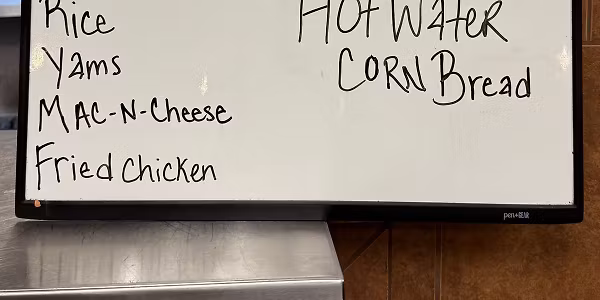 Rice
Yams
MAC-N-Cheese
Fried Chicken
HOT Water
CORN Bread